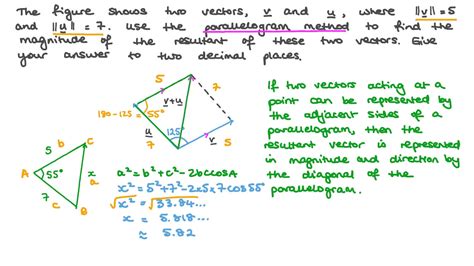 The figure shows two vectors, v and u, where ||v|| = 5
and ||u|| = 7. Use the parallelogram method to find the
magnitude of the resultant of these two vectors. Give
your answer to two decimal places.
5
7
v+u
180-125=55°
u
7
125°
v
5
If two vectors acting at a
point can be represented by
the adjacent sides of a
parallelogram, then the
resultant vector is represented
in magnitude and direction by
the diagonal of the
parallelogram.
5
b
C
A
55°
x
a
7
c
B
a² = b² + c² - 2bccosA
x² = 5² + 7² - 2x5x7cos55°
√x² = √33.84...
x = 5.818...
≈ 5.82